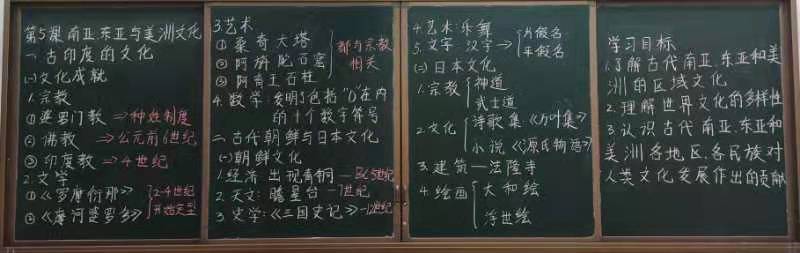 第5课 南亚、东亚与美洲文化
一、古印度的文化
(一)文化成就
1.宗教
①婆罗门教⇒种姓制度
②佛教⇒公元前6世纪
③印度教⇒4世纪
2.文学
①《罗摩衍那》
②《摩诃婆罗多》
2-4世纪
开始定型
3.艺术
①桑奇大塔
②阿旃陀石窟
③阿育王石柱
都与宗教
相关
4.数学:发明了包括"0"在内
的十个数字符号
二、古代朝鲜与日本文化
(一)朝鲜文化
1.经济:出现青铜
2.天文:瞻星台—7世纪
3.史学:《三国史记》—12世纪
4.艺术:乐舞
5.文字 汉字→片假名
平假名
(二)日本文化
1.宗教 神道
武士道
2.文化 诗歌集《万叶集》
小说《源氏物语》
3.建筑—法隆寺
4.绘画 大和绘
浮世绘
学习目标
1.了解古代南亚、东亚和美
洲的区域文化
2.理解世界文化的多样性
3.认识古代南亚、东亚和
美洲各地区、各民族对
人类文化发展作出的贡献